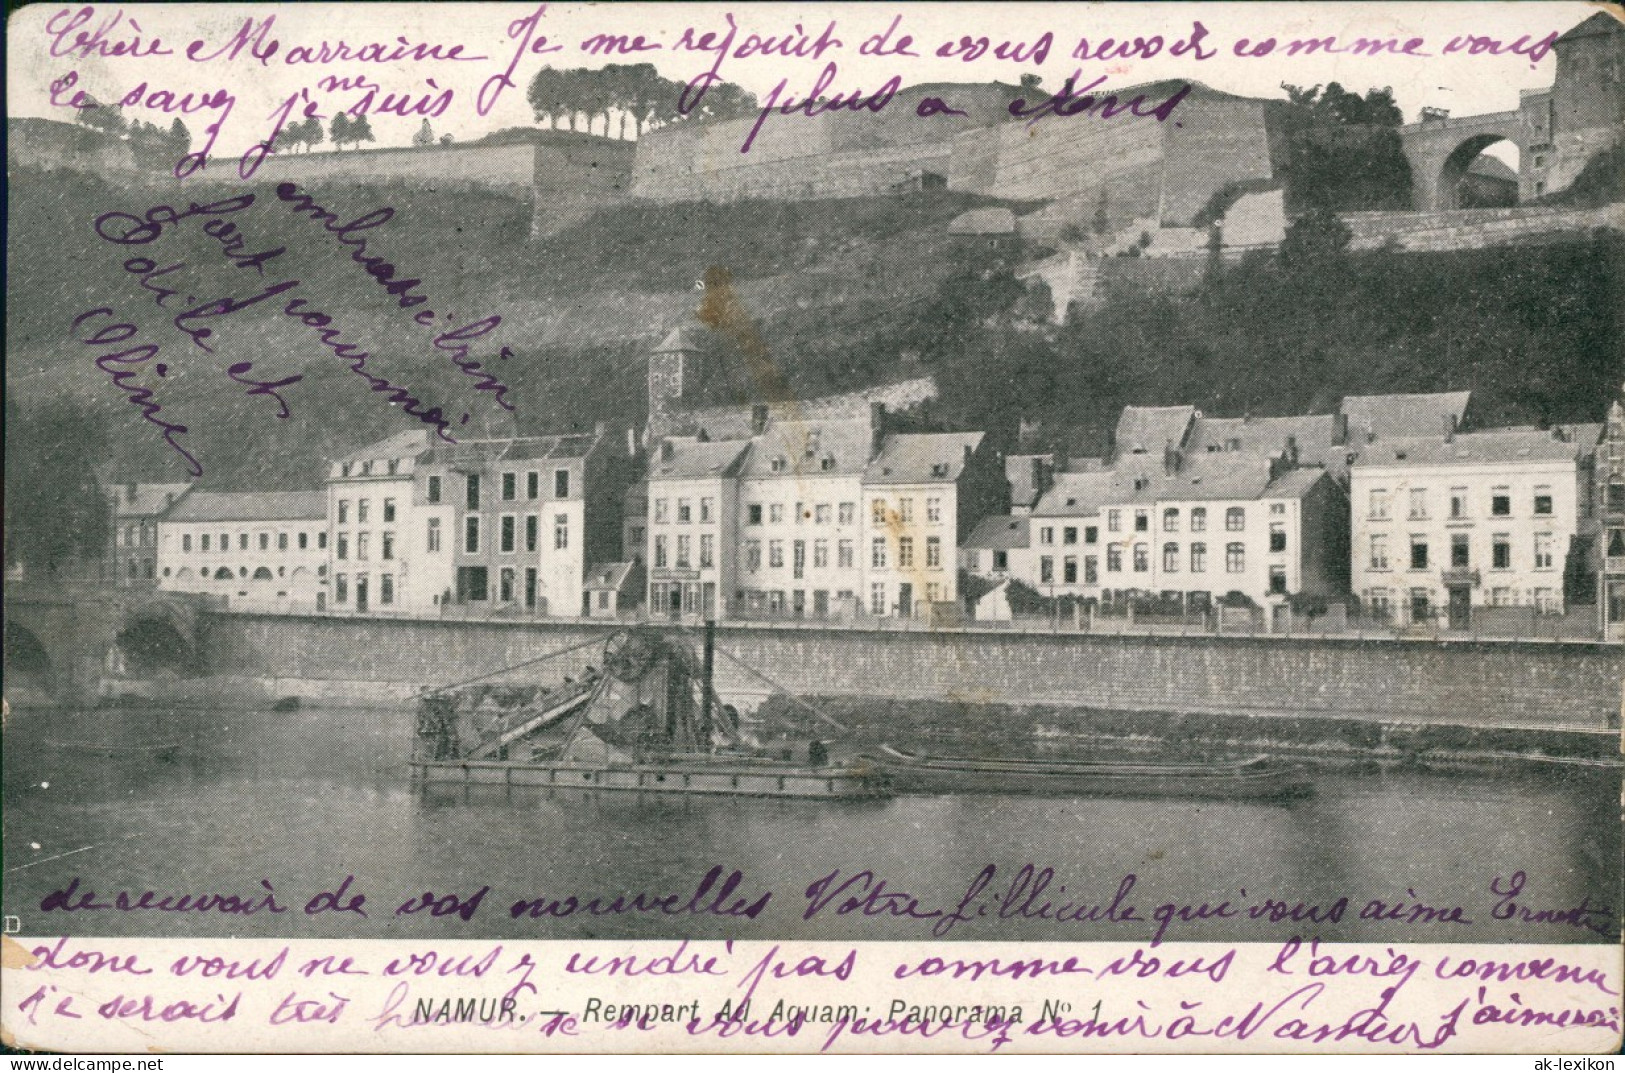 Chère Marraine Je me réjouit de vous revoir comme vous
le savez je ne suis plus a Xons.
embrassé bien
fort pour moi
Odile et
Cline
de recevoir de vos nouvelles Votre fillieule qui vous aime Ernestine
D
donc vous ne vous y undré pas comme vous l'aviez convenu
je serait très heureuse si vous pouvez venir à Namur J'aimerai
NAMUR. — Rempart Ad Aquam; Panorama No 1
ak-lexikon